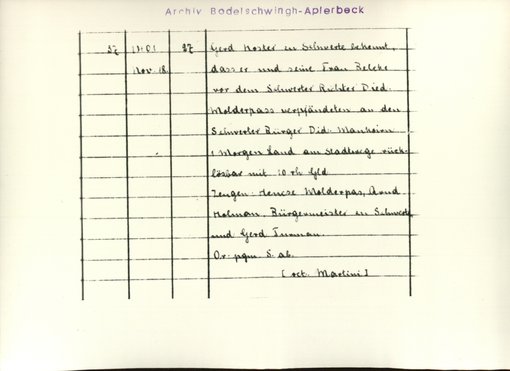 Archiv Bodelschwingh-Aplerbeck
27 1401 27 Gerd Koster en Schwerte bekennt,
Nov. 18. dass er und seine Frau Beleke
vor dem Schwerter Richter Died.
Molderpass verpfändeten an den
Schwerter Bürger Did. Manhorn
1 Morgen Land am Stadtwege rück-
lösbar mit 10 rh. Gld
Zeugen: Molderpas, Arnd
Holman, Bürgermeister en Schwerte
und Gerd Tunman.
Or. pgm. S. ab.
[oct. Martini]